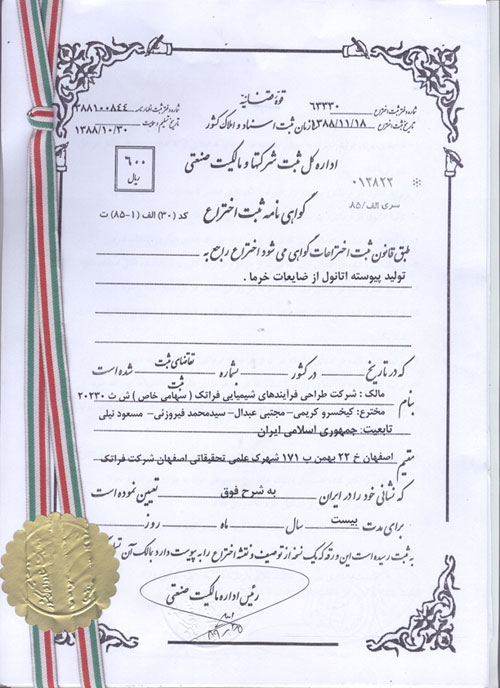 قوهٔ قضائیه
شماره دفتر ثبت اختراع ۶۳۳۳۰
تاریخ ثبت اختراع ۱۳۸۸/۱۱/۱۸
سازمان ثبت اسناد و املاک کشور
شماره دفتر ثبت اظهارنامه ۳۸۸۱۰۰۸۴۴
تاریخ تسلیم ۱۳۸۸/۱۰/۳۰
اداره کل ثبت شرکتها و مالکیت صنعتی
۶۰۰
ریال
۰۱۳۸۲۳ *
سری الف/۸۵
گواهی نامه ثبت اختراع
کد (۳۰) الف (۱-۸۵) ت
طبق قانون ثبت اختراعات گواهی می شود اختراع راجع به
تولید پیوسته اتانول از ضایعات خرما .
که در تاریخ در کشور بشماره تقاضای ثبت ثبت شده است
مالک : شرکت طراحی فرآیندهای شیمیایی فراتک ( سهامی خاص ) ش ث ۲۰۲۳۰
بنام
مخترع: کیخسرو کریمی- مجتبی عبدال- سیدمحمد فیروزنی- مسعود نیلی
تابعیت: جمهوری اسلامی ایران
مقیم اصفهان خ ۲۲ بهمن ب ۱۷۱ شهرک علمی تحقیقاتی اصفهان شرکت فراتک
که نشانی خود را در ایران به شرح فوق تعیین نموده است
برای مدت بیست سال ماه روز
به ثبت رسیده است این ورقه که یک نسخه از توصیف و نقشه اختراع را به پیوست دارد بمالک آن
رئیس اداره مالکیت صنعتی